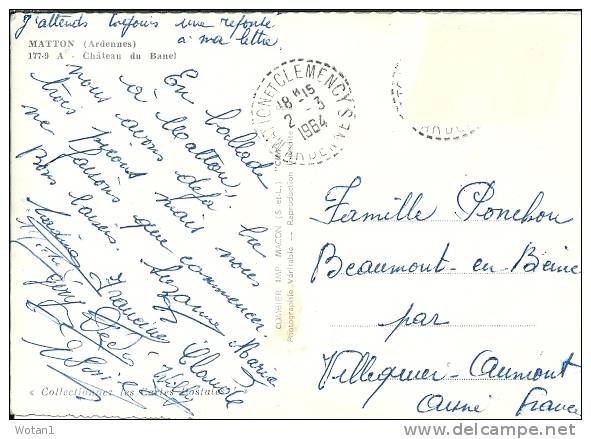 J'attends toujours une reponse
à ma lettre
MATTON (Ardennes)
177-9 A - Château du Banel
En ballade
à Matton,
nous avons déjà bu
trois pérous mais nous
ne faisons que commencer
Bons baisers. Suzanne Maria
Nadine Francine Claude
Willy
COMBIER IMP. MACON (S.-et-L.) "CIM"
Photographie Véritable - Reproduction interdite
MATTON ET CLEMENCY
18 H 15
2 - 3
1964
ARDENNES
ARDE
Famille Ponchon
Beaumont-en-Beine
par
Villequier-Aumont
Aisne France
« Collectionnez les Cartes Postales »
Wotan1
delcampe.net